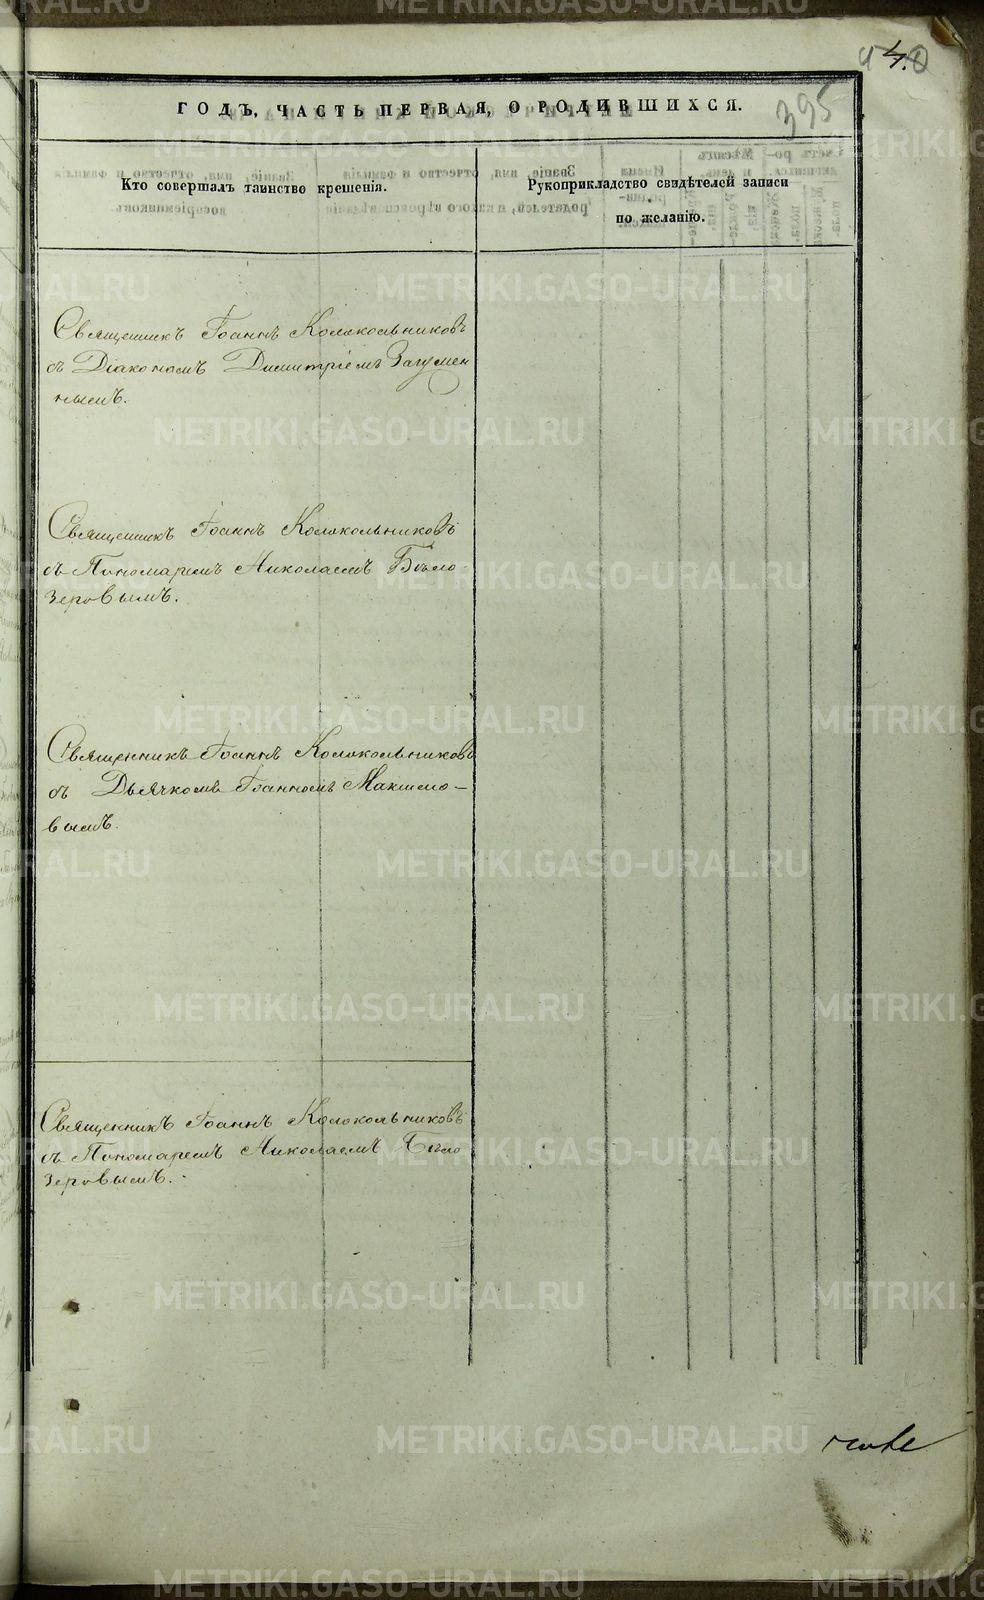 395
ГОДЪ, ЧАСТЬ ПЕРВАЯ, О РОДИВШИХСЯ.
Кто совершалъ таинство крещенія.
Рукоприкладство свидѣтелей записи
по желанію.
Священникъ Іоаннъ Колокольниковъ
съ Діакономъ Димитріемъ Загумен
нымъ.
Священникъ Іоаннъ Колокольниковъ
съ Пономаремъ Николаемъ Бѣло-
зеровымъ.
Священникъ Іоаннъ Колокольниковъ
съ Дьячкомъ Іоанномъ Максимо-
вымъ.
Священникъ Іоаннъ Колокольниковъ
съ Пономаремъ Николаемъ Бѣло
зеровымъ.
METRIKI.GASO-URAL.RU